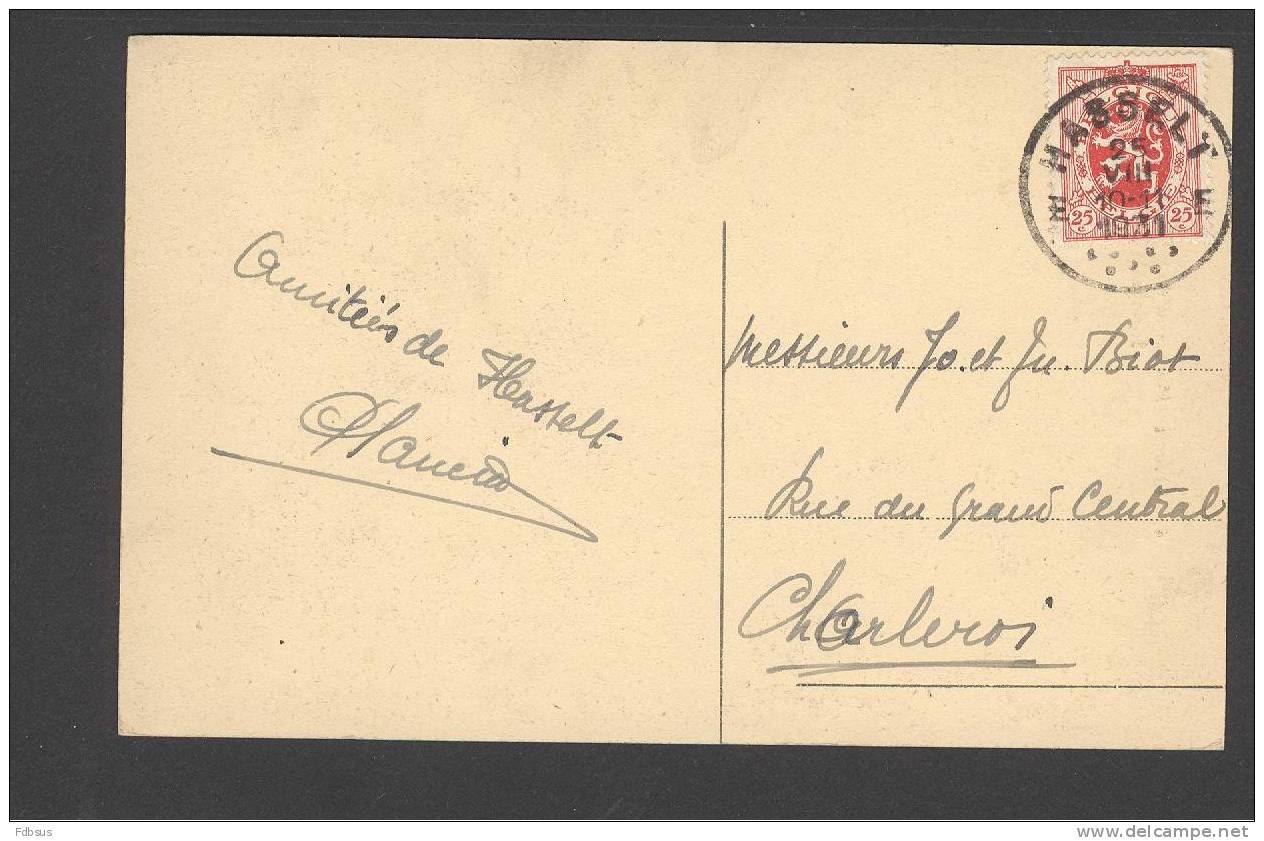 HASSELT
25
VIII
10-11
1931
E E
25 25
BELGIE
Amitiés de Hasselt
Messieurs Jo. et Ju. Biot
Rue du Grand Central
Charleroi
Fdbsus
www.delcampe.net